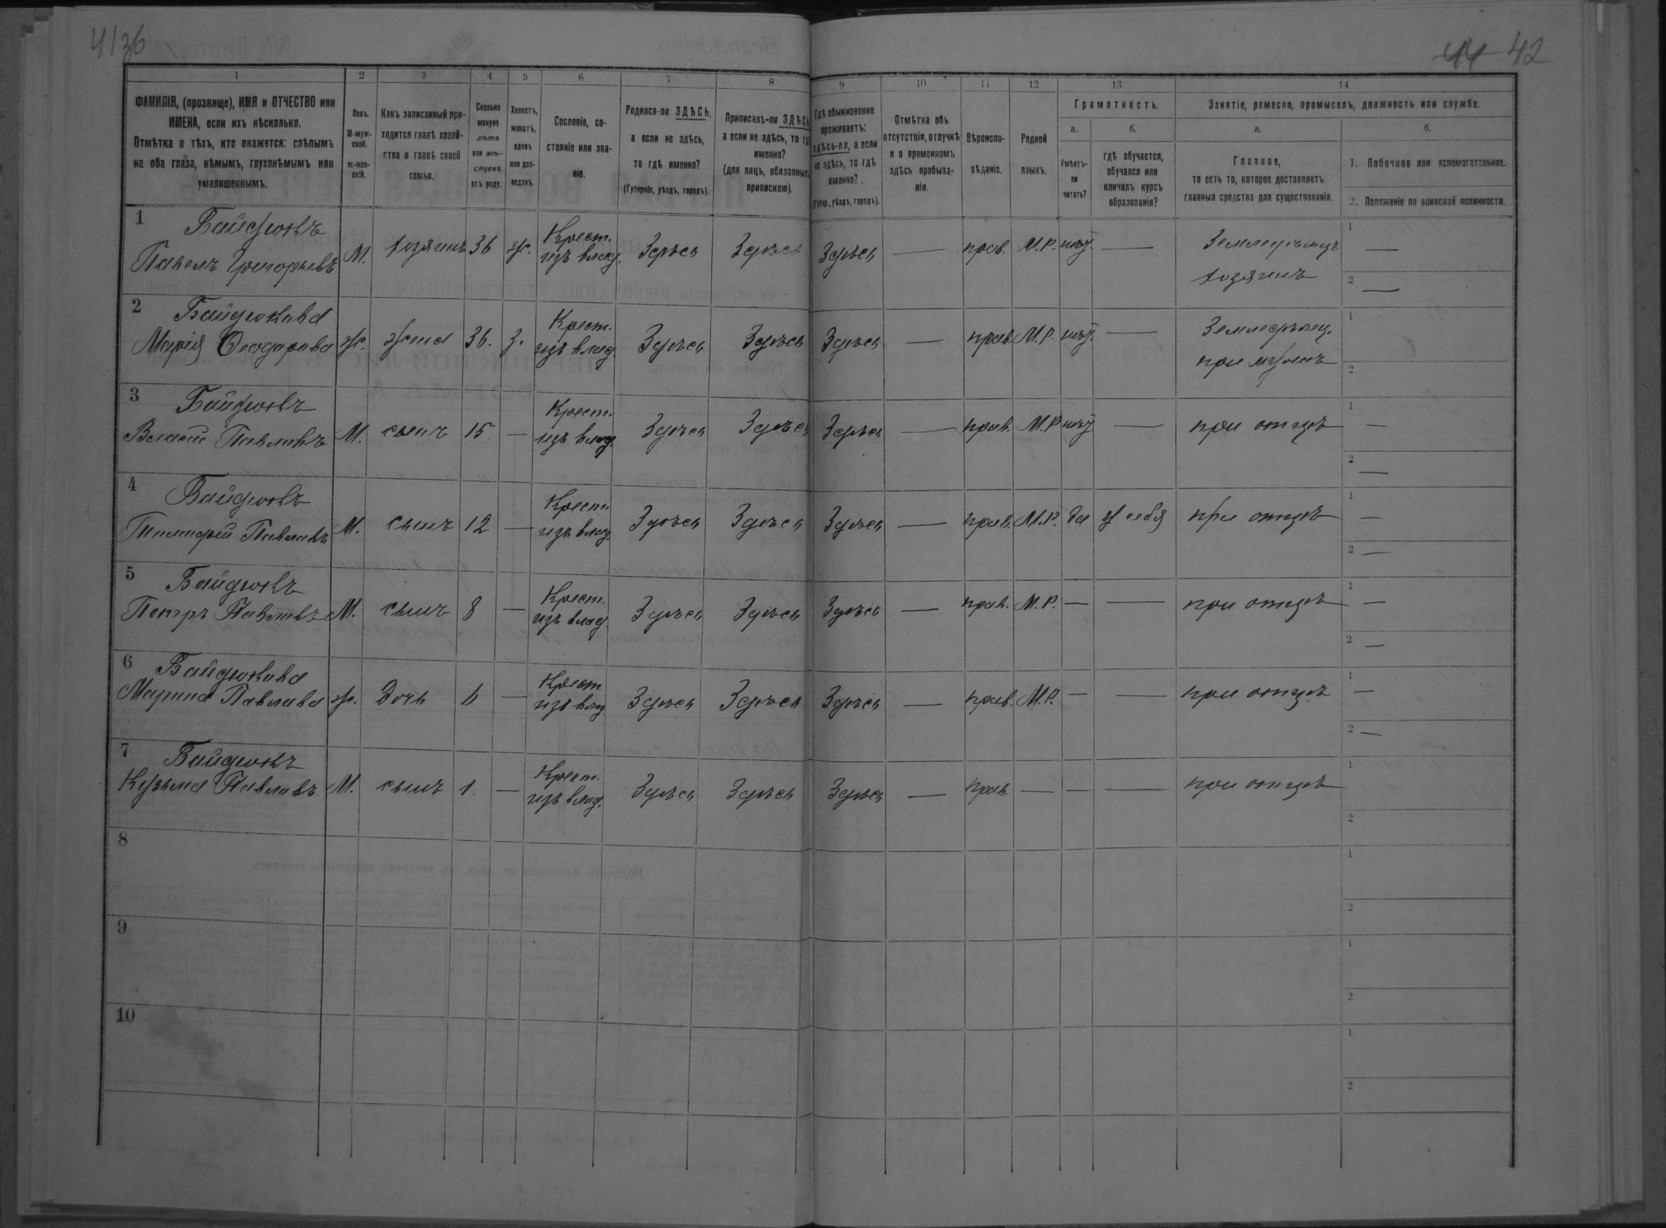 4136
44 42
1 2 3 4 5 6 7 8 9 10 11 12 13 14
ФАМИЛІЯ, (прозвище), ИМЯ и ОТЧЕСТВО или
ИМЕНА, если ихъ нѣсколько.
Отмѣтка о тѣхъ, кто окажется: слѣпымъ
на оба глаза, нѣмымъ, глухонѣмымъ или
умалишеннымъ.
Полъ.
М-муж-
ской.
Какъ записанный при-
ходится главѣ хозяй-
ства и главѣ своей
семьи.
Сколько
минуло
лѣтъ
или мѣ-
сяцевъ
отъ роду.
Холостъ,
женатъ,
вдовъ
или раз-
веденъ.
Сословіе, со-
стояніе или зва-
ніе.
Родился-ли ЗДѢСЬ,
а если не здѣсь,
то гдѣ именно?
(Губернія, уѣздъ, городъ).
Приписанъ-ли ЗДѢСЬ
а если не здѣсь, то гдѣ
именно?
(для лицъ, обязанныхъ
припискою).
Гдѣ обыкновенно
проживаетъ:
здѣсь-ли, а если
не здѣсь, то гдѣ
именно?
(Губер., уѣздъ, городъ).
Отмѣтка объ
отсутствіи, отлучкѣ
и о временномъ
здѣсь пребыва-
ніи.
Вѣроиспо-
вѣданіе.
Родной
языкъ.
Грамотность.
а.
Умѣетъ-
ли
читать?
б.
гдѣ обучается,
обучался или
кончилъ курсъ
образованія?
Занятіе, ремесло, промыселъ, должность или служба.
а.
Главное,
то есть то, которое доставляетъ
главныя средства для существованія.
б.
1. Побочное или вспомогательное.
2. Положеніе по воинской повинности.
1 Байдюкъ
Павелъ Григорьевъ М. хозяинъ 36 ж. Крест. изъ влад. Здѣсь Здѣсь Здѣсь — прав. М.Р. нѣт. — Земледѣлецъ хозяинъ 1 — 2 —
2 Байдюкова
Марія Феодорова ж. жена 36. з. Крест. изъ влад. Здѣсь Здѣсь Здѣсь — прав. М.Р. нѣт. — Земледѣлец. при мужѣ 1 2
3 Байдюкъ
Власій Павловъ М. сынъ 15 — Крест. изъ влад. Здѣсь Здѣсь Здѣсь — прав. М.Р. нѣт — при отцѣ 1 — 2 —
4 Байдюкъ
Тимофей Павловъ М. сынъ 12 — Крест. изъ влад. Здѣсь Здѣсь Здѣсь — прав. М.Р. да у себя при отцѣ 1 — 2 —
5 Байдюкъ
Петръ Павловъ М. сынъ 8 — Крест. изъ влад. Здѣсь Здѣсь Здѣсь — прав. М.Р. — — при отцѣ 1 — 2 —
6 Байдюкова
Марина Павлова ж. Дочь — Крест изъ влад Здѣсь Здѣсь Здѣсь — прав. М.Р. — — при отцѣ 1 — 2 —
7 Байдюкъ
Кузьма Павловъ М. сынъ 1. — Крест. изъ влад. Здѣсь Здѣсь Здѣсь — прав. — — — при отцѣ 1 2
8 1 2
9 1 2
10 1 2